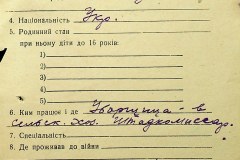 4. Національність Укр.
5. Родинний стан
при ньому діти до 16 років:
1)
2)
3)
4)
5)
6. Ким працює і де Уборщица в
сельск. хоз. Штадкомиссар.
7. Спеціяльність
8. Де проживав до війни